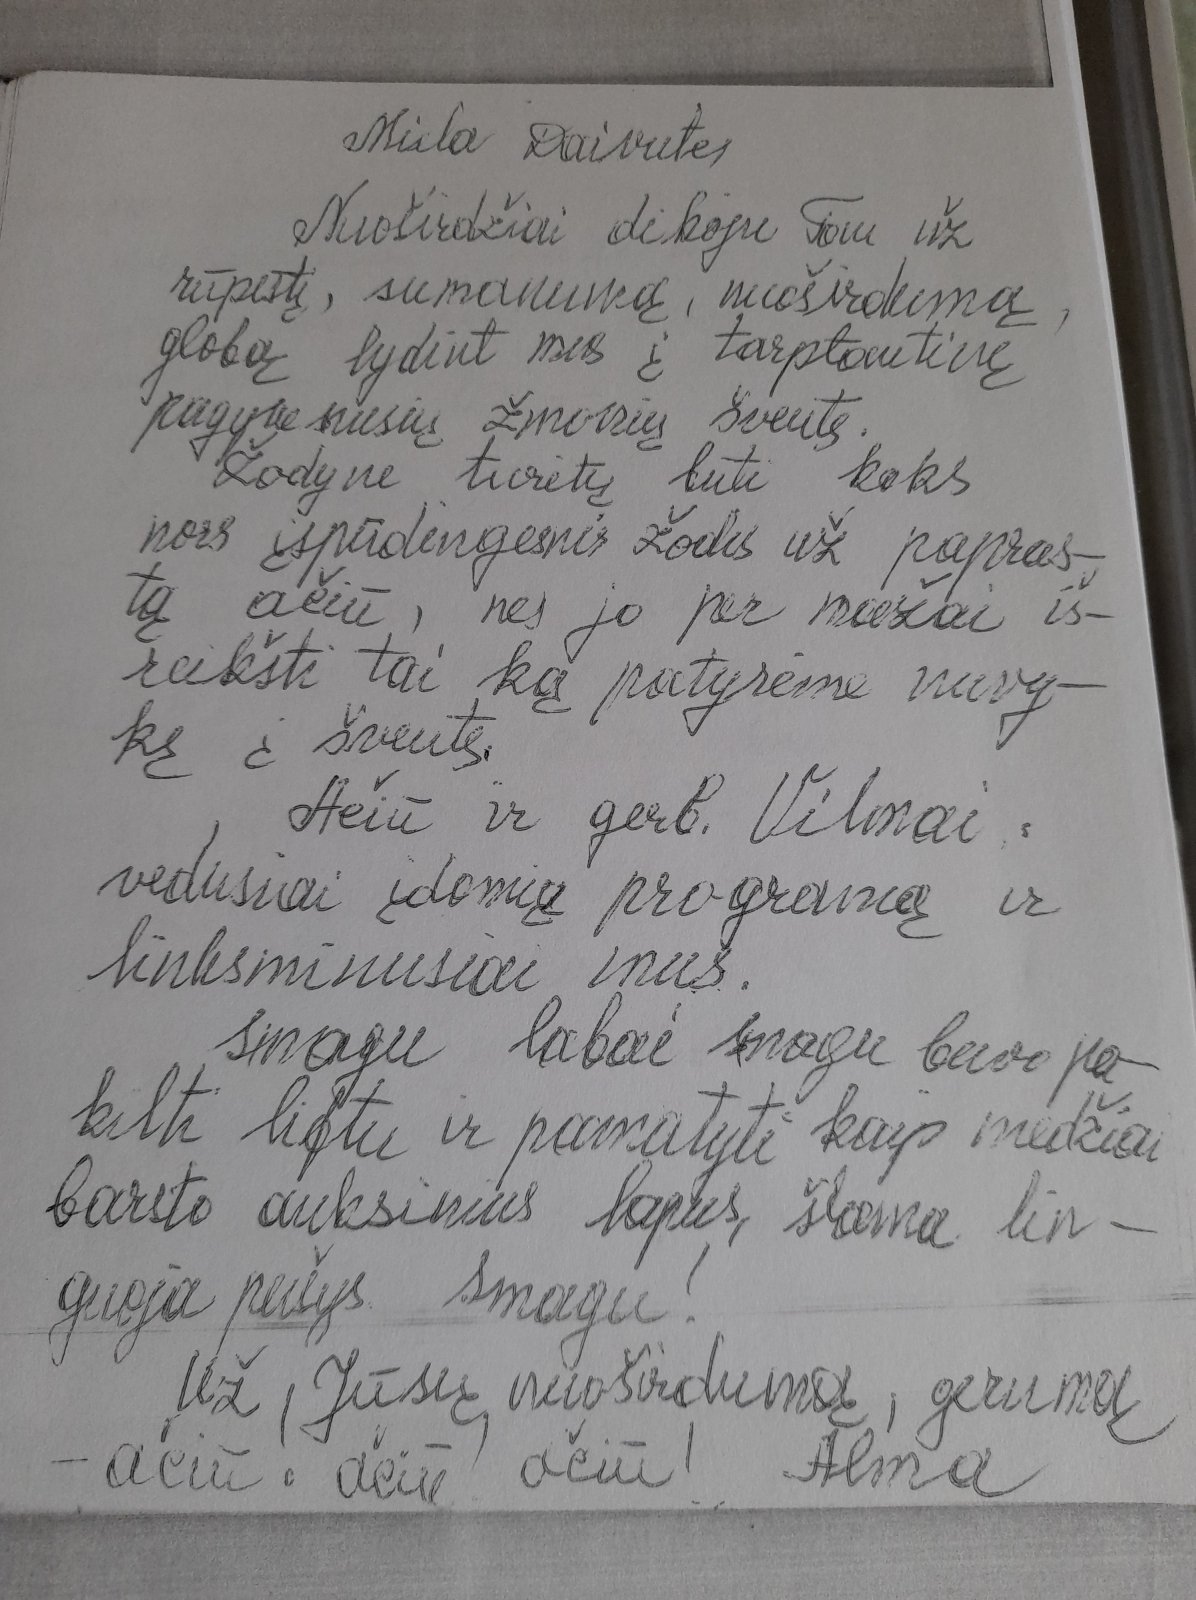 Miela Daivute,
Nuoširdžiai dėkoju Tau už
rūpestį, sumanumą, nuoširdumą,
globą lydint mus į tarptautinę
pagyvenusių žmonių šventę.
Žodyne turėtų būti koks
nors įspūdingesnis žodis už papras-
tą ačiū, nes jo per mažai iš-
reikšti tai ką patyrėme nuvy-
kę į šventę.
Ačiū ir gerb. Vilmai
vedusiai įdomią programą ir
linksminusiai mus.
Smagu labai smagu buvo pa-
kilti liftu ir pamatyti kaip medžiai
barsto auksinius lapus, šlama lin-
guoja pušys. Smagu!
Už Jūsų nuoširdumą, gerumą
- ačiū, ačiū ačiū! Alma